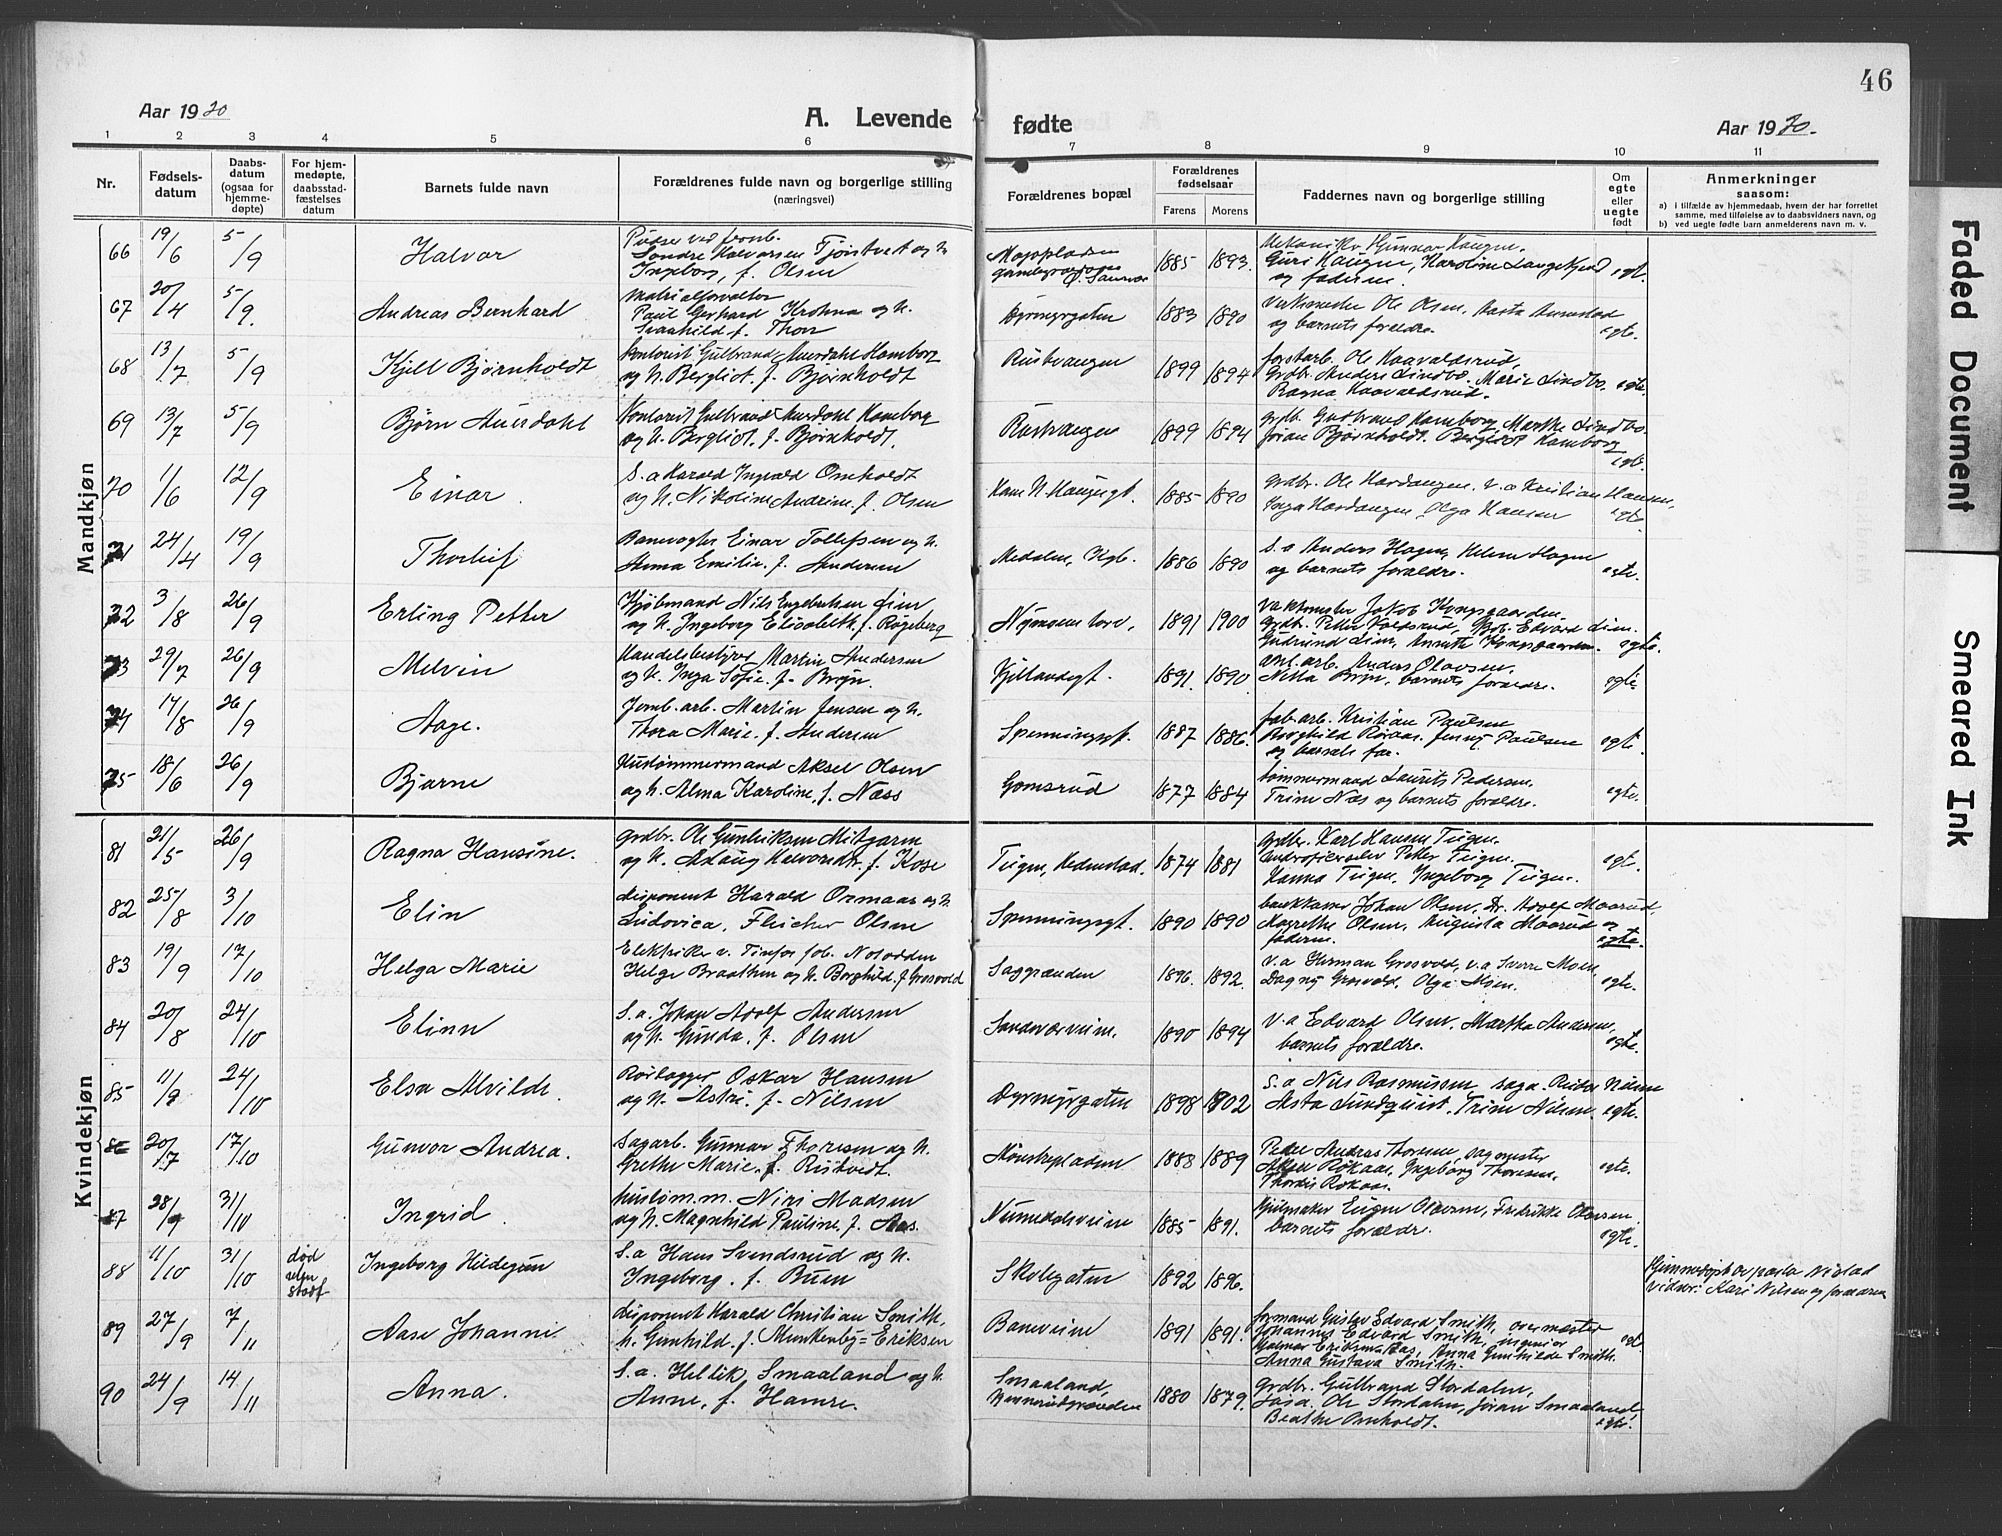 46
Aar 1920
A. Levende fødte
Aar 1920.
1 2 3 4 5 6 7 8 9 10 11
Nr.
Fødsels-
datum
Daabs-
datum
(ogsaa for
hjemme-
døpte)
For hjem-
medøpte,
daabsstad-
fæstelses
datum
Barnets fulde navn
Forældrenes fulde navn og borgerlige stilling
(næringsvei)
Forældrenes bopæl
Forældrenes
fødselsaar
Farens Morens
Faddernes navn og borgerlige stilling
Om
egte
eller
uegte
født
Anmerkninger
saasom:
a) i tilfælde av hjemmedaab, hvem der har forrettet
samme, med tilføielse av to daabsvidners navn, og
b) ved uegte fødte barn anmelderens navn m. v.
Mandkjøn
66 19/6 5/9 Halvor
Sondre Halvorsen Tjønstvet og h.
Ingeborg, f. Olsen
1885 1893.
Guri Haugen, Karoline Langekjend
og faderen. egt.
67 20/4 5/9. Andreas Bernhard
Materialforvalter
Paul Gerhard Krohna og h.
Svanhild f. Thor
Dyrmyrgaten 1883 1890
Verksmester Ole Olsen,
og barnets forældre. egte.
68 13/7 5/9 Kjell Bjørnholdt
Kontorist Gulbrand Aursdahl Hamborg
og h. Bergliot. f. Bjørnholdt
Rustvangen 1899 1894
forstarb. Ole Haavaldsrud,
Grdbr. Anders Lindbo. Marie Lindbo. egte.
Ragna Haavaldsrud.
69 13/7 5/9 Bjørn Aursdahl
Kontorist Gulbrand Aursdahl Hamborg
og h. Bergliot. f. Bjørnholdt.
Rustvangen 1899 1894
grdb. Gudbrand Hamborg, Marthe Lindbo.
Jøran Bjørnholdt. Bergliot Hamborg
egte.
70 1/6 12/9 Einar.
S.a Harald Ingvald Omholdt
og h. Nikoline Andrine f. Olsen
Hans N. Haugesgt. 1885 1890
grdbr. Ole Hardangen. v.a Kristian Hansen,
Inga Hardangen, Olga Hansen egte.
71 24/4 19/9 Thorleif
Banevogter Einar Tollefsen og h.
Anna Emilie. f. Andersen
Medalen, Kgb. 1886 1890
S.a Anders Hagen, Helene Hagen
og barnets forældre. egte.
72 3/8 26/9 Erling Petter
Kjøbmand Nils Engebretsen Lien
og h. Ingeborg Elisabeth f. Røgeberg
Nymoens torv, 1891 1900
Vaktmester Jakob Kongsgaarden
grdb. Peter Voldsrud, Edvard Lien.
Gudrund Lien, Annette Kongsgaarden. egte.
73 29/7 26/9 Melvin
Handelsbestyrer Martin Andersen
og h. Inga Sofie. f. Bryn.
Kjellandsgt. 1891. 1890
anl. arb. Anders Olavsen,
Nilla Bryn, barnets forældre. egte.
74 14/8 26/9 Aage.
Jernb. arb. Martin Jensen og h.
Thora Marie. f. Andersen
Spenningsgt. 1887 1886.
fab. arb. Kristian Paulsen
Borghild Røraas. Jenny Paulsen
og barnets far. egte.
75 18/6 26/9 Bjarne
Hustømmermand Aksel Olsen
og h. Alma Karoline. f. Næss
Gomsrud 1877 1884
tømmermand Laurits Pedersen.
Trine Næs og barnets forældre. egte.
Kvindekjøn
81 21/5 26/9 Ragna Hansine.
grdbr. Ole Gunleiksen Mitgarm
og h. Aslaug Halvorsdtr. f. Kose
Teigen, Hedenstad. 1874 1881
grdbr. Karl Hansen Teigen.
Petter Teigen.
Hanna Teigen, Ingeborg Teigen. egt.
82 25/8 3/10 Elin
disponent Harald Ormaas og h.
Ludovica. Fleicher Olsen
Spenningsgt. 1890 1890
bankkasser Johan Olsen, Dr. Adolf Moarud,
Magrethe Olsen, Augusta Moarud og
faderen. egte.
83 19/9 17/10 Helga Marie
Elektriker v. Tinfos fab. Notodden
Helge Braathen og h. Borghild, f. Grosvold
Saggrenden 1896. 1892.
v.a Herman Grosvold, v.a Sverre Moen,
Dagny Grosvold, Olga Moen. egte.
84 20/8 24/10 Elinn
S.a. Johan Adolf Andersen
og h. Gunda. f. Olsen
Sandsværveien. 1890 1894
v.a Edvard Olsen, Martha Andersen,
barnets forældre. egte.
85 11/9 24/10 Elsa Alvilde.
Rørlægger Oskar Hansen
og h. Astri. f. Nilsen
Dyrmyrgaten 1898 1802
S.a Nils Rasmussen, saga. Peder Nilsen
Asta Lundquist, Trine Nilsen egte.
86 20/7 17/10 Gunvor Andrea.
Sagarb. Gunnar Thoresen og h.
Grethe Marie. f. Rustvedt.
1888 1889
Peder Andreas Thoresen, sagmester
Aksel Røkaas, Ingeborg Thoresen,
Thordis Røkaas. egte.
87 28/9 31/10 Ingrid.
hustøm.m. Nils Madsen
og h. Magnhild Pauline. f. Aas.
Numedalsveiene 1885 1891.
Hjulmaker Eugen Olavsen, Fredrikke Olavsen
barnets forældre. egte.
88 11/10 31/10 død
uten
stadf
Ingeborg Hildegun
S.a Hans Svendsrud og h.
Ingeborg. f. Buen
Skolegaten 1892 1896.
Hjemmedøpt av Nistad
vidner: Kari Nilsen og forældrene
89 27/9 7/11 Aase Johanne
disponent Harald Christian Smith,
h. Gunhild. f. Munkenby=Eriksen
Baneveiene 1891 1891.
formand Gustav Edvard Smith, overmester
Johannes Edvard Smith, ingeniør
Hjalmar Aas, Anna Gunhilde Smith.
Anna Gustava Smith. egt.
90 24/9 14/11 Anna.
S.a. Hellik Smaaland og h.
Anne, f. Hamre.
Smaaland,
1880 1879.
grdbr. Gulbrand Stordalen,
Ole Stordalen, Jøran Smaaland,
Beathe Omholdt. egte.
Faded Document
Smeared Ink